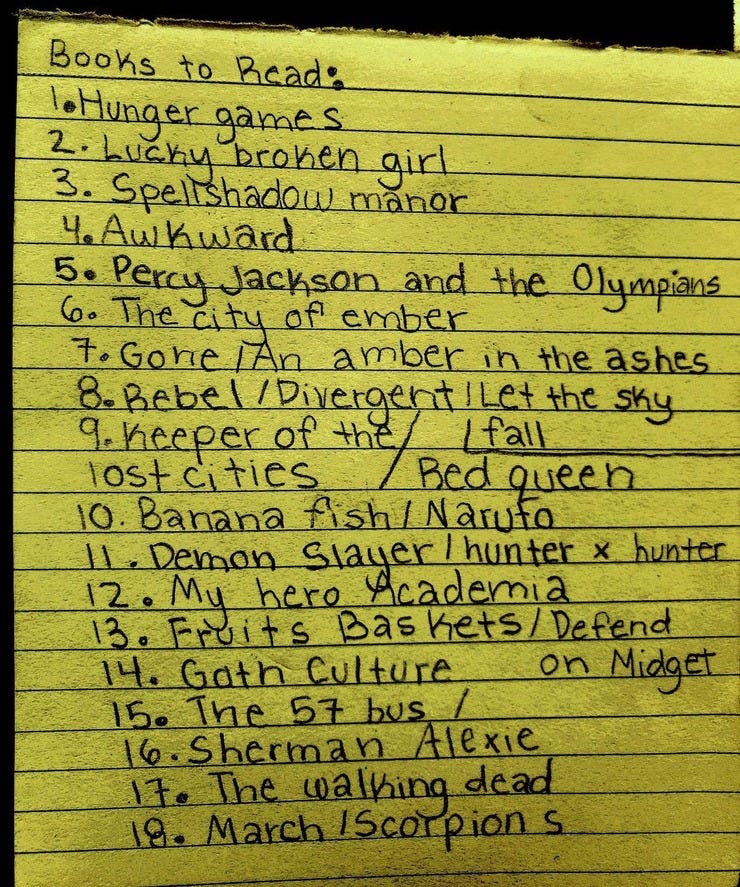 Books to Read:
1. Hunger games
2. Lucky broken girl
3. Spellshadow manor
4. Awkward
5. Percy Jackson and the Olympians
6. The city of ember
7. Gone / An amber in the ashes
8. Rebel / Divergent / Let the sky
9. Keeper of the / / fall
lost cities / Red queen
10. Banana fish / Naruto
11. Demon Slayer / hunter x hunter
12. My hero Academia
13. Fruits Baskets / Defend
14. Goth Culture on Midget
15. The 57 bus /
16. Sherman Alexie
17. The walking dead
18. March / Scorpions